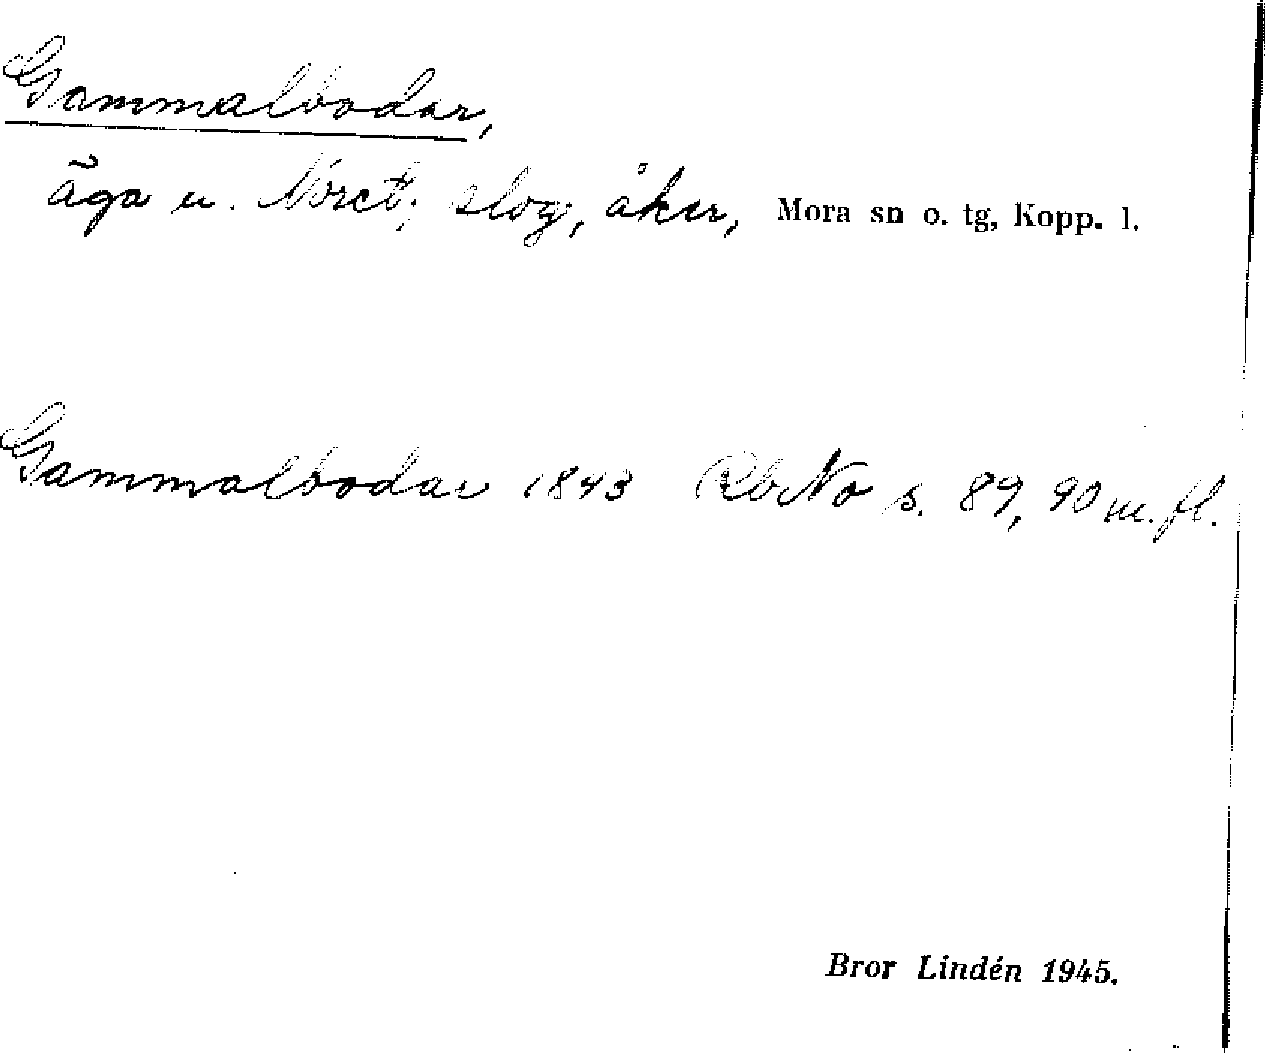 Gammalbodar,
äga u. Noret; slog, åker, Mora sn o. tg, Kopp. l.
Gammalbodar 1843 RbNo s. 89, 90 m. fl.
Bror Lindén 1945.